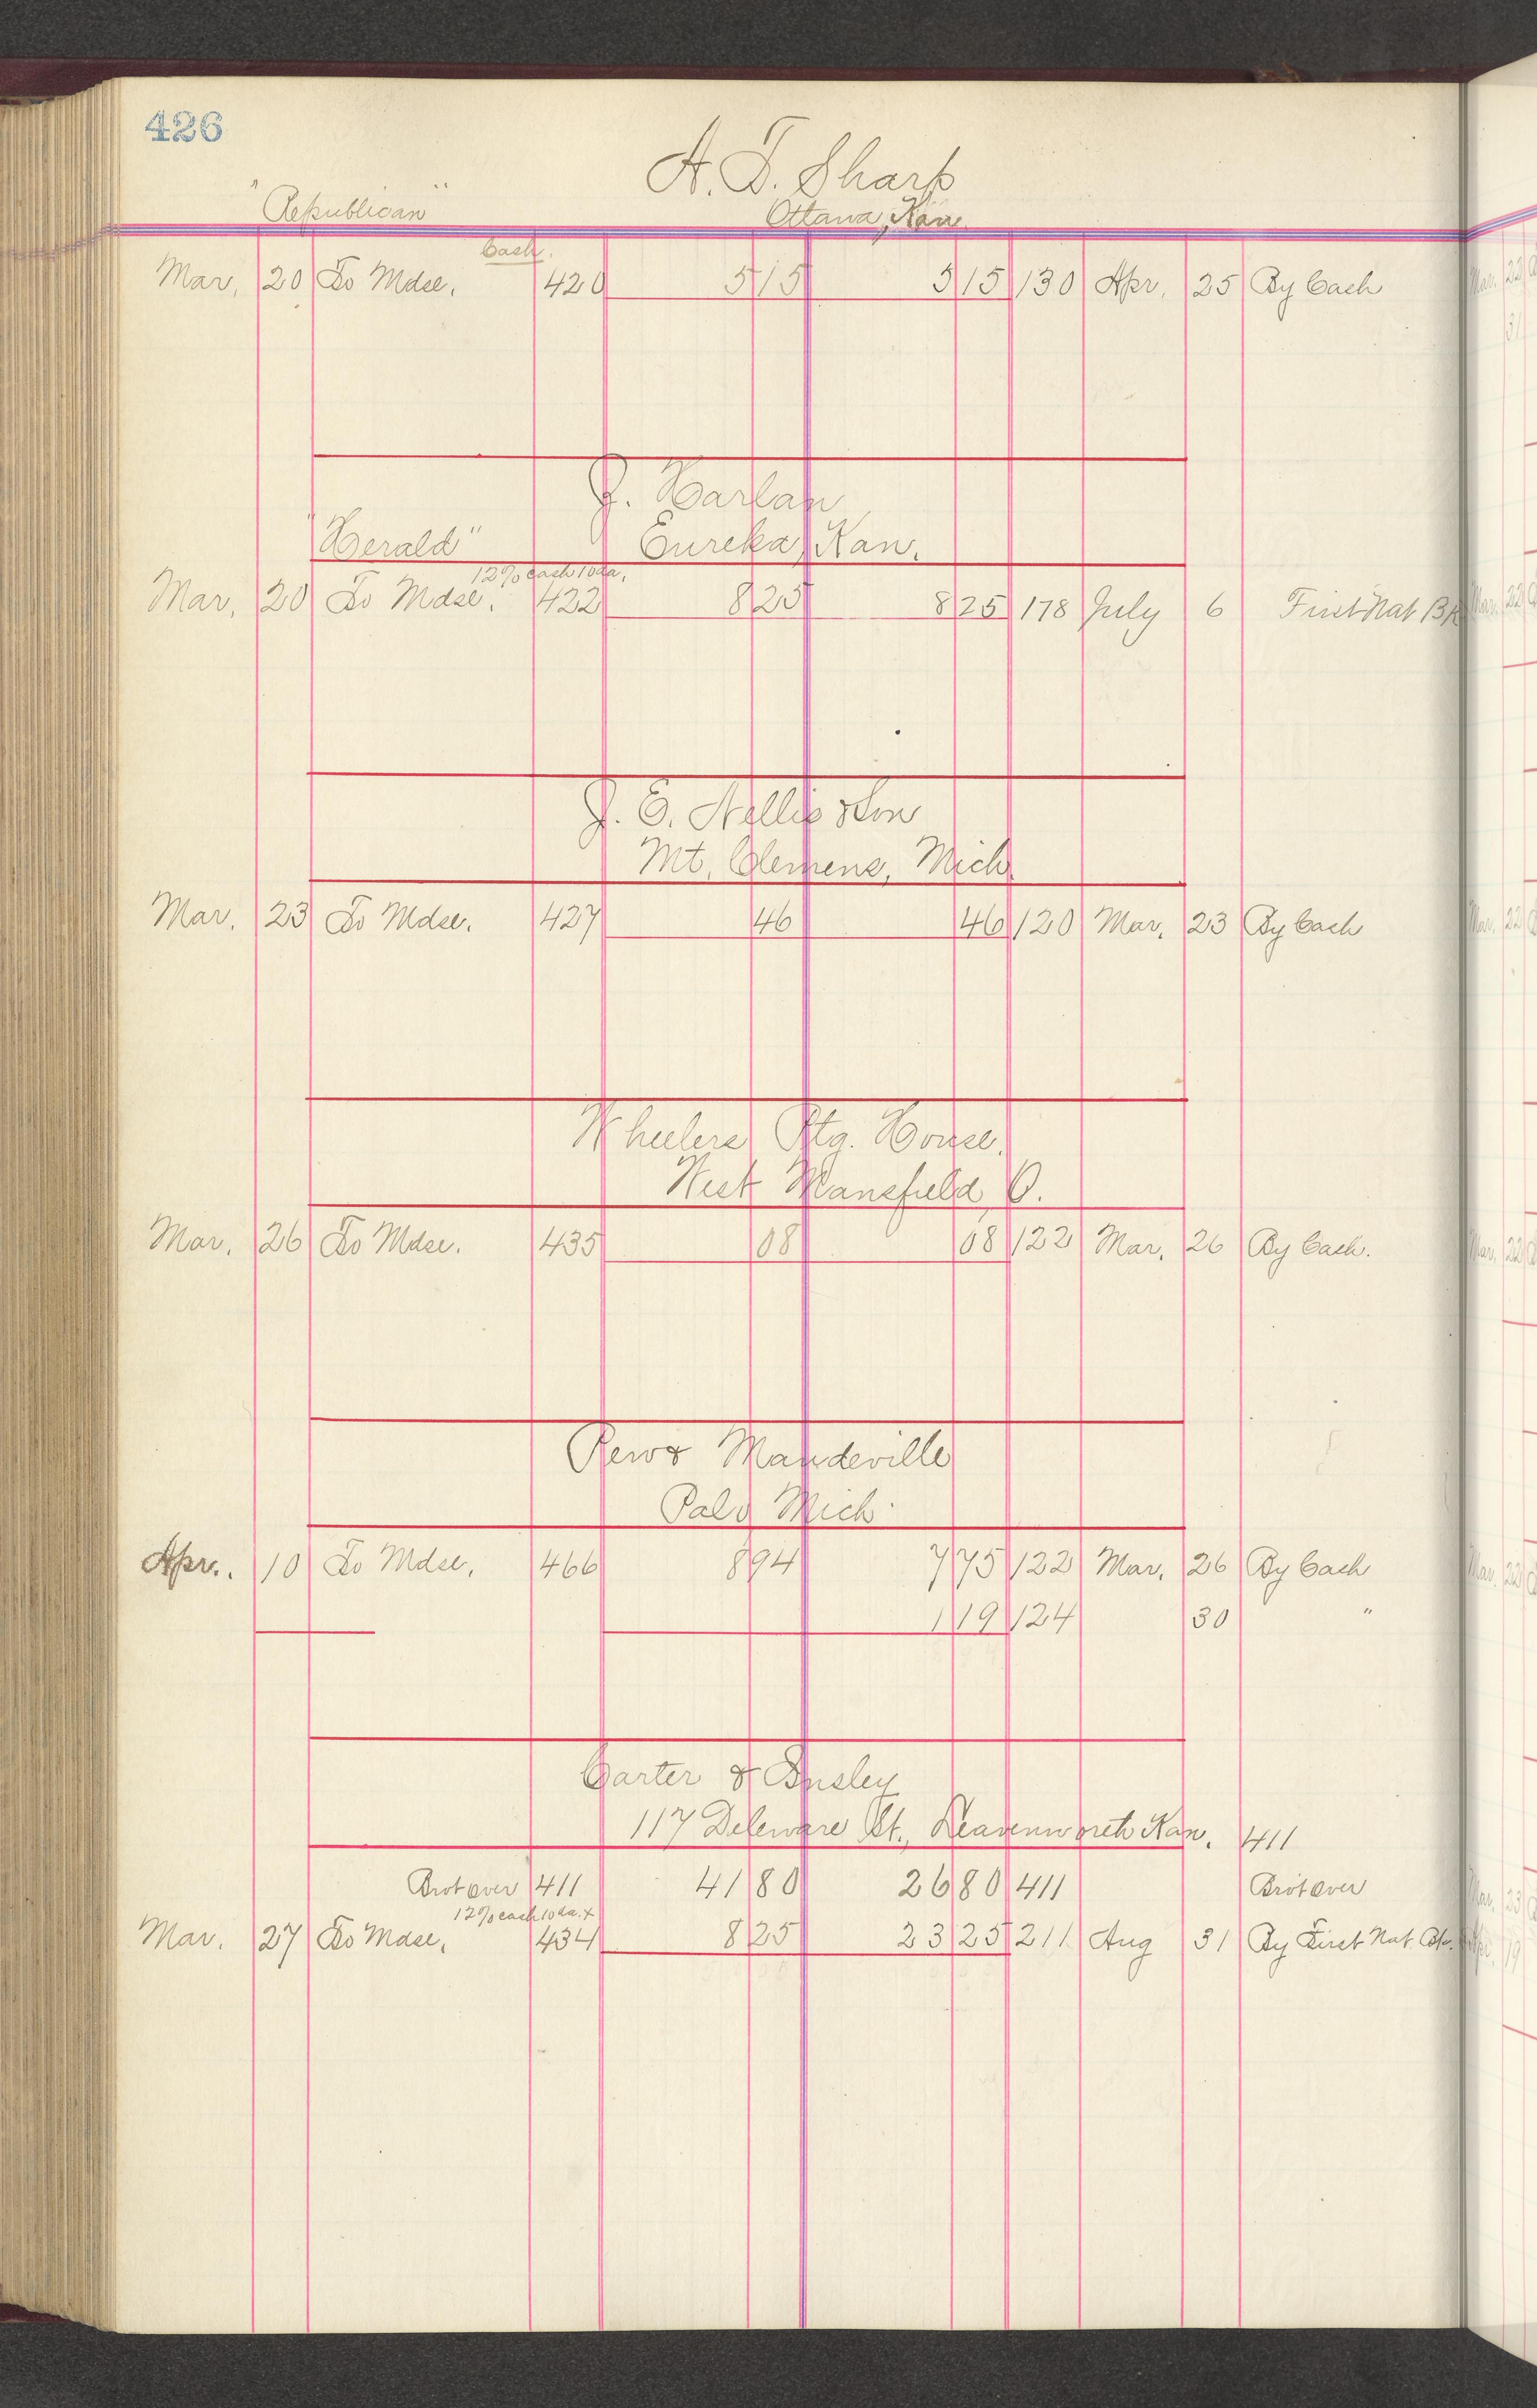 426
A. T. Sharp
"Republican"
Ottawa, Kan.
Cash.
Mar. 20 To Mdse. 420 5 15 5 15 130 Apr. 25 By Cash
J. Harlan
"Herald" Eureka, Kan.
12% cash 10 da.
Mar. 20 To Mdse. 422 8 25 8 25 178 July 6 First Nat Bk
J. E. Nellis & Son
Mt. Clemens, Mich
Mar. 23 To Mdse. 427 46 46 120 Mar. 23 By Cash
Wheelers Ptg. House.
West Mansfield, O.
Mar. 26 To Mdse. 435 08 08 122 Mar. 26 By Cash.
Rew & Mandeville
Palo Mich.
Apr. 10 To Mdse. 466 8 94 7 75 122 Mar. 26 By Cash
1 19 124 30 "
Carter & Insley
117 Deleware St., Leavenworth Kan. 411
Brot over 411 41 80 26 80 411 Brot over
12% cash 10 da. +
Mar. 27 To Mdse. 434 8 25 23 25 211 Aug 31 By First Nat. Bk.